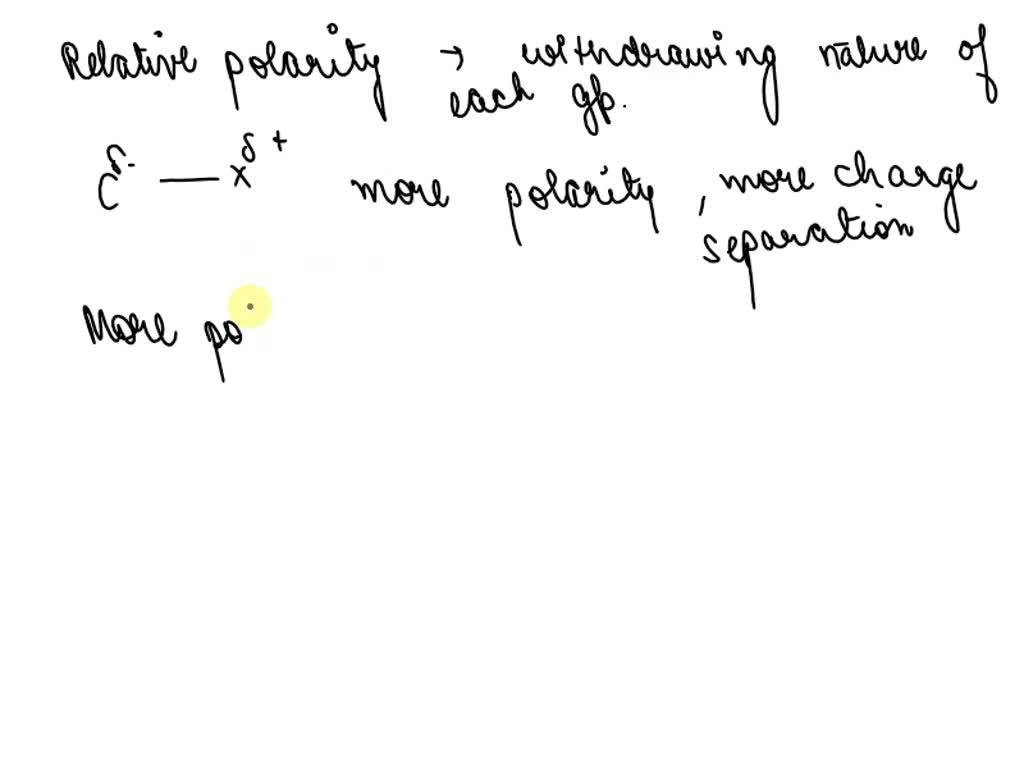 Relative polarity → withdrawing nature of
each gp.
C δ- — x δ+ more polarity, more charge
separation
More po